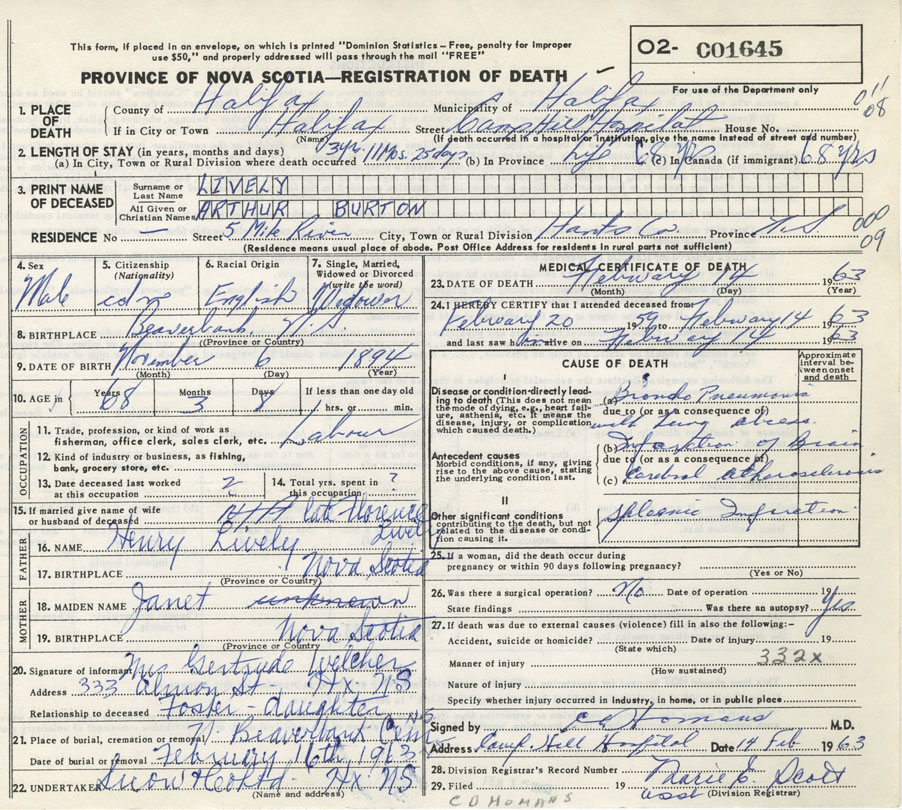 This form, if placed in an envelope, on which is printed "Dominion Statistics – Free, penalty for improper
use $50," and properly addressed will pass through the mail "FREE"
O2- CO1645
For use of the Department only
PROVINCE OF NOVA SCOTIA—REGISTRATION OF DEATH
011
08
1. PLACE OF DEATH County of Halifax Municipality of Halifax
If in City or Town Halifax Street Camp Hill Hospital House No.
(Name) (If death occurred in a hospital or institution, give the name instead of street and number)
2. LENGTH OF STAY (in years, months and days)
(a) In City, Town or Rural Division where death occurred 3 yrs. 11 Mos. 25 days (b) In Province Life 68 yrs (c) In Canada (if immigrant) 68 yrs
3. PRINT NAME OF DECEASED Surname or Last Name LIVELY
All Given or Christian Names ARTHUR BURTON
RESIDENCE No — Street 5 Mile River City, Town or Rural Division Hants Co. Province N.S
(Residence means usual place of abode. Post Office Address for residents in rural parts not sufficient)
000
09
4. Sex Male
5. Citizenship (Nationality)
6. Racial Origin English
7. Single, Married, Widowed or Divorced (write the word) Widower
8. BIRTHPLACE Beaverbank N.S.
(Province or Country)
9. DATE OF BIRTH November 6 1894
(Month) (Day) (Year)
10. AGE in Years 68 Months 3 Days 8 If less than one day old hrs. or min.
OCCUPATION
11. Trade, profession, or kind of work as fisherman, office clerk, sales clerk, etc. Labour
12. Kind of industry or business, as fishing, bank, grocery store, etc.
13. Date deceased last worked at this occupation ?
14. Total yrs. spent in this occupation ?
15. If married give name of wife or husband of deceased late Florence Lively
FATHER
16. NAME Henry Lively
17. BIRTHPLACE Nova Scotia
(Province or Country)
MOTHER
18. MAIDEN NAME Janet unknown
19. BIRTHPLACE Nova Scotia
(Province or Country)
20. Signature of informant Mrs Gertrude Welcher
Address 333 Almon St. Hx. NS
Relationship to deceased Foster-daughter
21. Place of burial, cremation or removal N. Beaverbank Cem NS
Date of burial or removal February 16th, 1963
22. UNDERTAKER Snow & Co Ltd - Hx NS
(Name and address)
MEDICAL CERTIFICATE OF DEATH
23. DATE OF DEATH February 14 1963
(Month) (Day) (Year)
24. I HEREBY CERTIFY that I attended deceased from
February 20 1959 to February 14 1963
and last saw him alive on February 14 1963
CAUSE OF DEATH
Approximate interval between onset and death
I
Disease or condition directly leading to death (This does not mean the mode of dying, e.g., heart failure, asthenia, etc. It means the disease, injury, or complication which caused death.)
(a) Broncho Pneumonia
due to (or as a consequence of)
with lung abcess.
Antecedent causes
Morbid conditions, if any, giving rise to the above cause, stating the underlying condition last.
(b) Infarction of Brain
due to (or as a consequence of)
(c) Cerebral atherosclerosis
II
Other significant conditions
contributing to the death, but not related to the disease or condition causing it.
Splenic Infarction
25. If a woman, did the death occur during
pregnancy or within 90 days following pregnancy?
(Yes or No)
26. Was there a surgical operation? No Date of operation 19
State findings Was there an autopsy? Yes
27. If death was due to external causes (violence) fill in also the following:–
Accident, suicide or homicide? Date of injury 19
(State which)
332x
Manner of injury
(How sustained)
Nature of injury
Specify whether injury occurred in industry, in home, or in public place
Signed by C D Homans M.D.
Address Camp Hill Hospital Date 14 Feb 1963
28. Division Registrar's Record Number
29. Filed 19 Marie E. Scott
asst (Division Registrar)
C D HOMANS